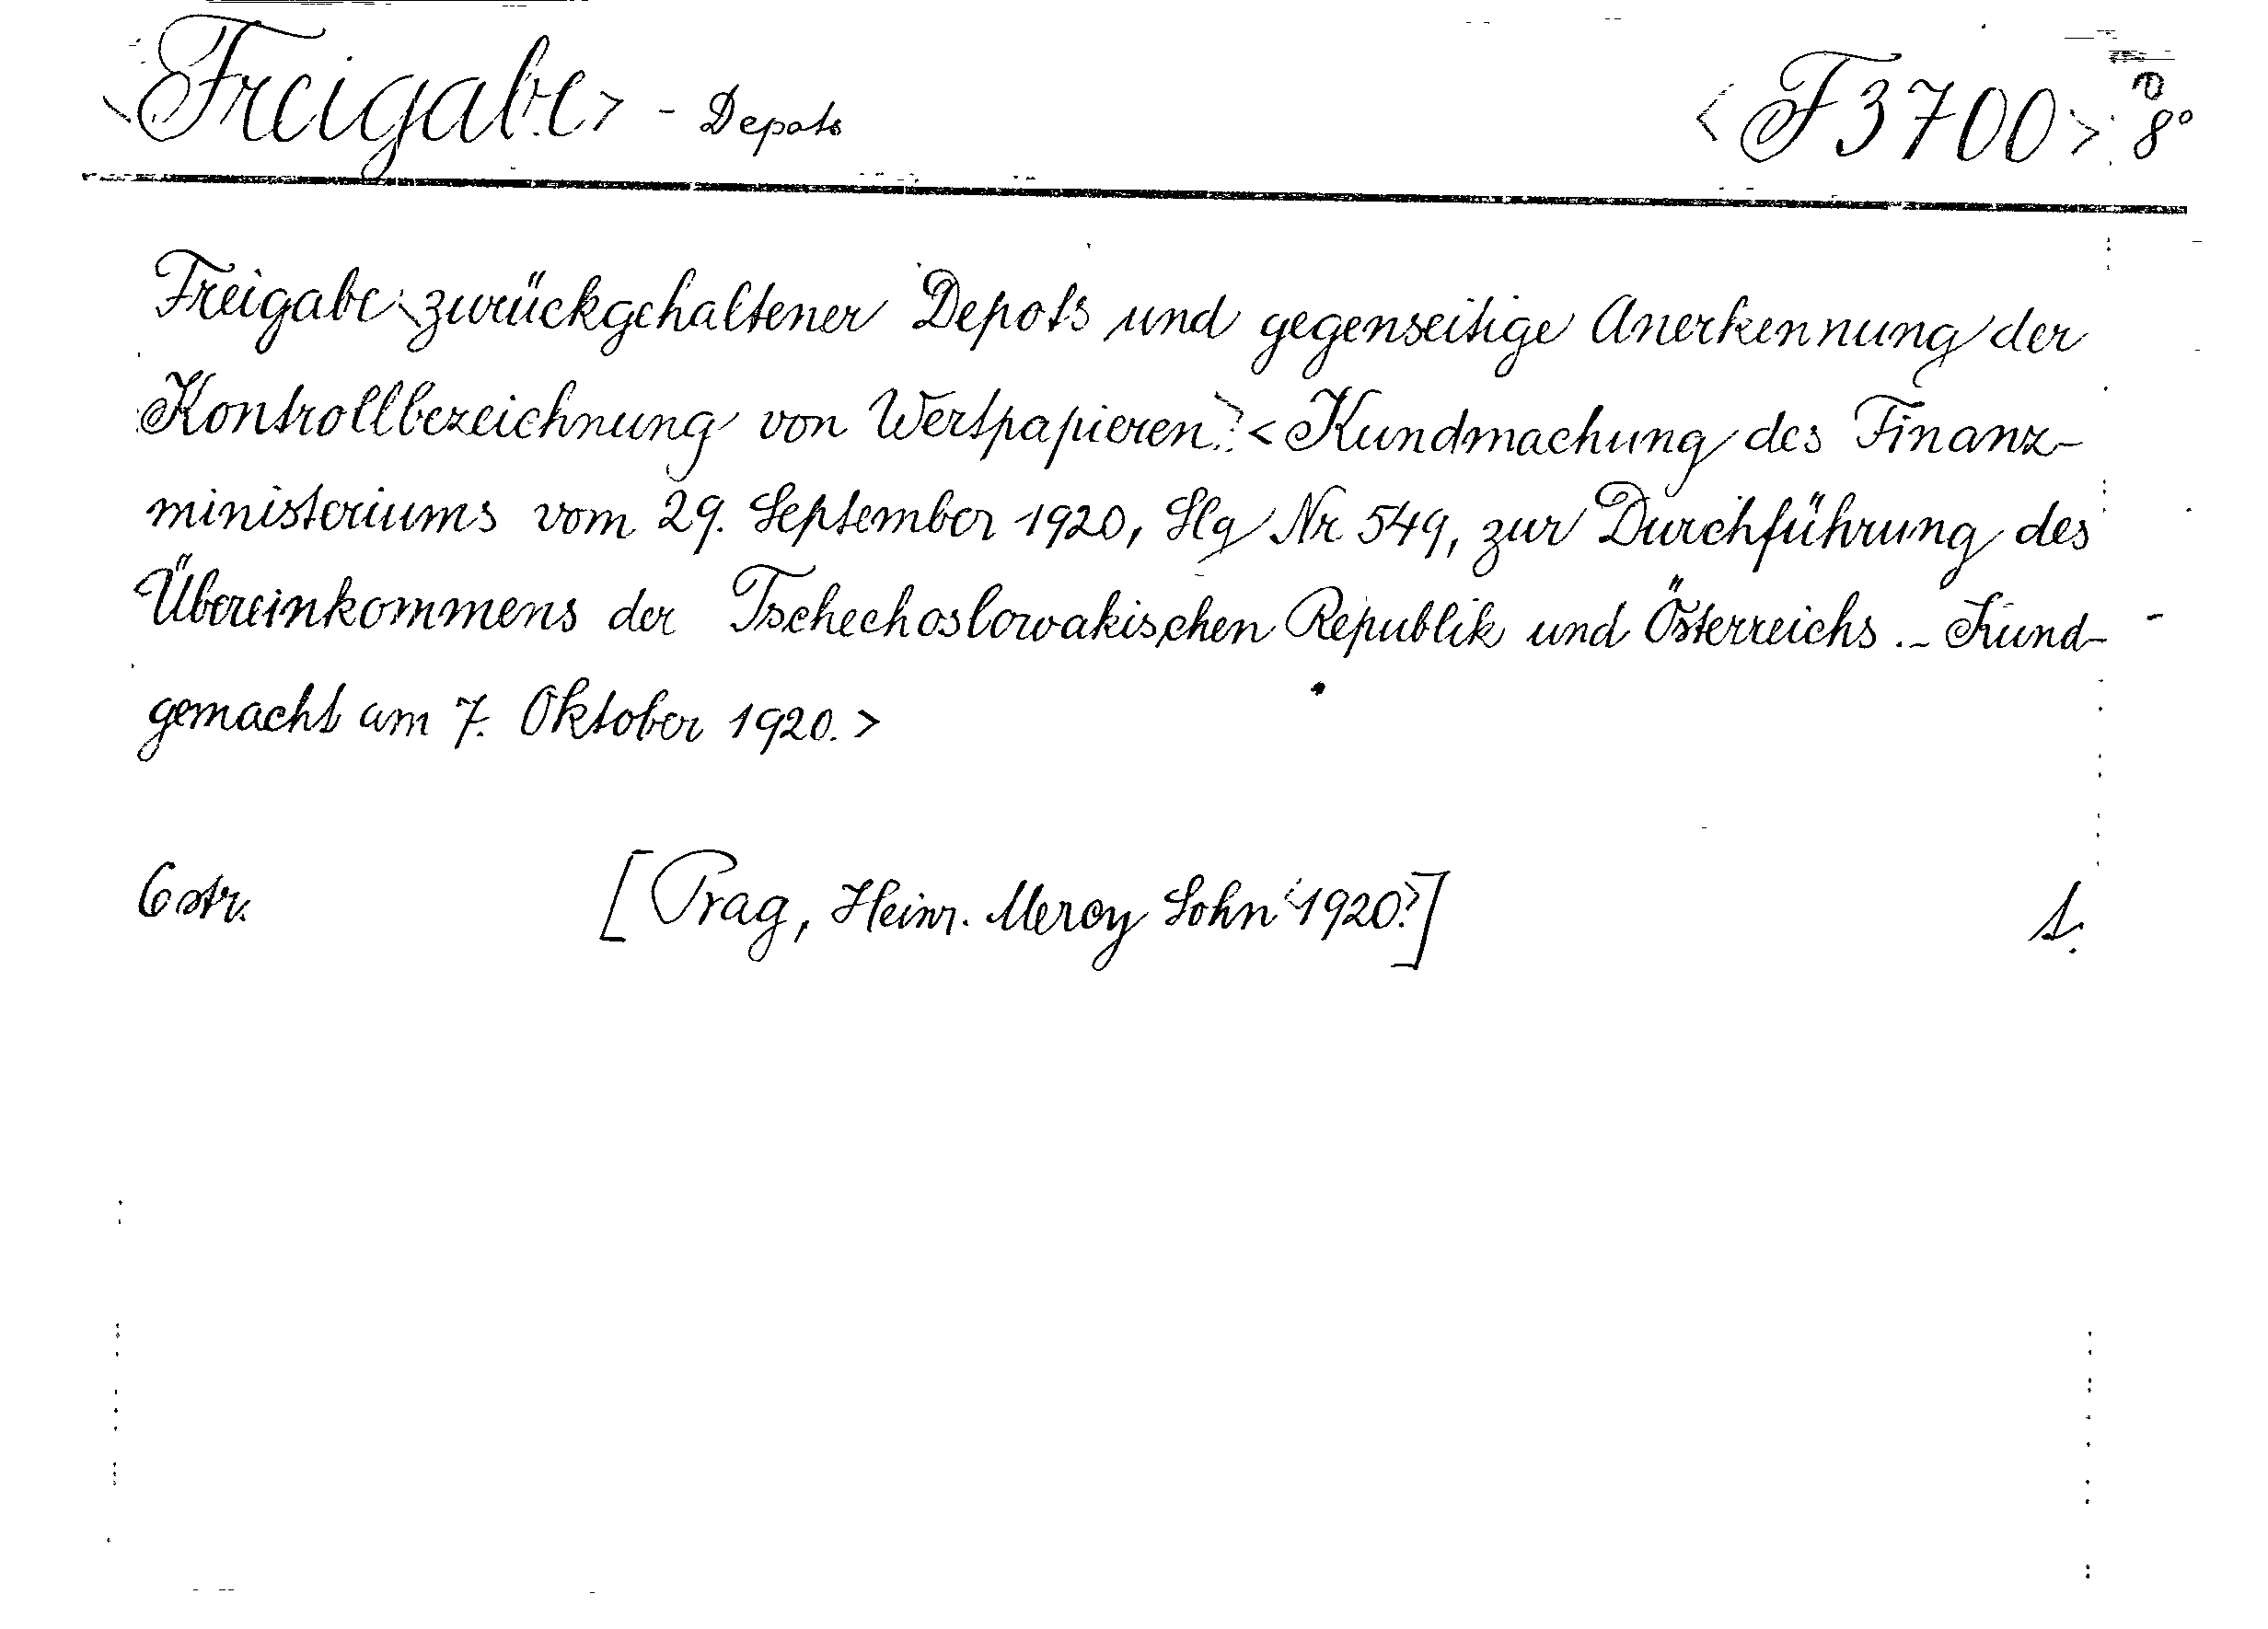 <Freigabe> - Depots <F 3700> 8°
Freigabe zurückgehaltener Depots und gegenseitige Anerkennung der
Kontrollbezeichnung von Wertpapieren.> <Kundmachung des Finanz-
ministeriums vom 29. September 1920, Slg Nr 549, zur Durchführung des
Übereinkommens der Tschechoslowakischen Republik und Österreichs. - Kund-
gemacht am 7. Oktober 1920.>
6 str. [Prag, Heinr. Mercy Sohn <1920.>] S.